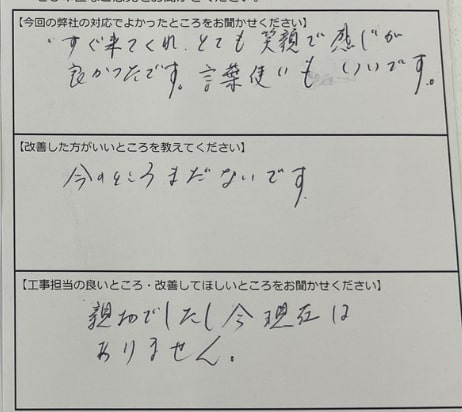 【今回の弊社の対応でよかったところをお聞かせください】
すぐ来てくれ、とても笑顔で感じが
良かったです。言葉使いもいいです。
【改善した方がいいところを教えてください】
今のところまだないです
【工事担当の良いところ・改善してほしいところをお聞かせください】
親切でしたし今現在は
ありません。